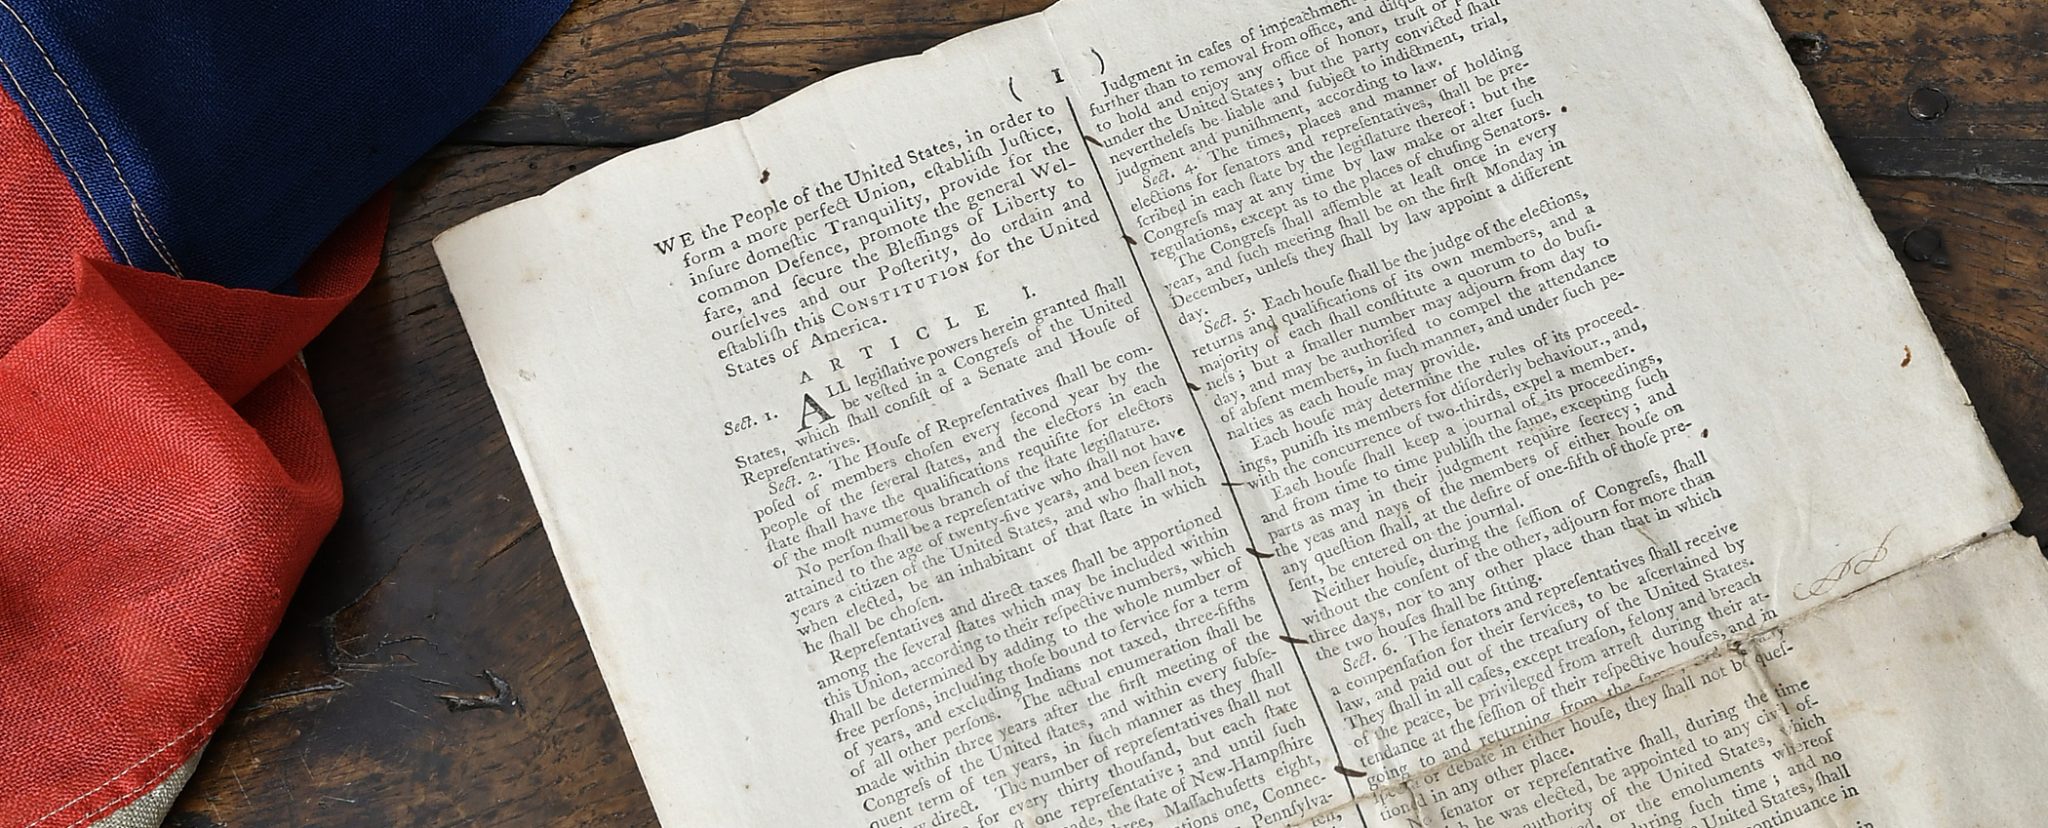 ( 1 )
WE the People of the United States, in order to
form a more perfect Union, eſtabliſh Juſtice,
inſure domeſtic Tranquility, provide for the
common Defence, promote the general Wel-
fare, and ſecure the Bleſſings of Liberty to
ourſelves and our Poſterity, do ordain and
eſtabliſh this CONSTITUTION for the United
States of America.
ARTICLE I.
Sect. 1. ALL legiſlative powers herein granted ſhall
be veſted in a Congreſs of the United
States, which ſhall conſiſt of a Senate and Houſe of
Repreſentatives.
Sect. 2. The Houſe of Repreſentatives ſhall be com-
poſed of members choſen every ſecond year by the
people of the ſeveral ſtates, and the electors in each
ſtate ſhall have the qualifications requiſite for electors
of the moſt numerous branch of the ſtate legiſlature.
No perſon ſhall be a repreſentative who ſhall not have
attained to the age of twenty-five years, and been ſeven
years a citizen of the United States, and who ſhall not,
when elected, be an inhabitant of that ſtate in which
he ſhall be choſen.
Repreſentatives and direct taxes ſhall be apportioned
among the ſeveral ſtates which may be included within
this Union, according to their reſpective numbers, which
ſhall be determined by adding to the whole number of
free perſons, including thoſe bound to ſervice for a term
of years, and excluding Indians not taxed, three-fifths
of all other perſons. The actual enumeration ſhall be
made within three years after the firſt meeting of the
Congreſs of the United ſtates, and within every ſubſe-
quent term of ten years, in ſuch manner as they ſhall
direct. The number of repreſentatives ſhall not
for every thirty thouſand, but each ſtate
one repreſentative; and until ſuch
made, the ſtate of New-Hampſhire
Maſſachuſetts eight,
one, Connec-
Pennſylva-
Judgment in caſes of impeachment
further than to removal from office, and diſqu
to hold and enjoy any office of honor, truſt or
under the United States; but the party convicted ſhall
nevertheleſs be liable and ſubject to indictment, trial,
judgment and puniſhment, according to law.
Sect. 4. The times, places and manner of holding
elections for ſenators and repreſentatives, ſhall be pre-
ſcribed in each ſtate by the legiſlature thereof: but the
Congreſs may at any time by law make or alter ſuch
regulations, except as to the places of chuſing Senators.
The Congreſs ſhall aſſemble at leaſt once in every
year, and ſuch meeting ſhall be on the firſt Monday in
December, unleſs they ſhall by law appoint a different
day.
Sect. 5. Each houſe ſhall be the judge of the elections,
returns and qualifications of its own members, and a
majority of each ſhall conſtitute a quorum to do buſi-
neſs; but a ſmaller number may adjourn from day to
day, and may be authoriſed to compel the attendance
of abſent members, in ſuch manner, and under ſuch pe-
nalties as each houſe may provide.
Each houſe may determine the rules of its proceed-
ings, puniſh its members for diſorderly behaviour, and,
with the concurrence of two-thirds, expel a member.
Each houſe ſhall keep a journal of its proceedings,
and from time to time publiſh the ſame, excepting ſuch
parts as may in their judgment require ſecrecy; and
the yeas and nays of the members of either houſe on
any queſtion ſhall, at the deſire of one-fifth of thoſe pre-
ſent, be entered on the journal.
Neither houſe, during the ſeſſion of Congreſs, ſhall
without the conſent of the other, adjourn for more than
three days, nor to any other place than that in which
the two houſes ſhall be ſitting.
Sect. 6. The ſenators and repreſentatives ſhall receive
a compenſation for their ſervices, to be aſcertained by
law, and paid out of the treaſury of the United States.
They ſhall in all caſes, except treaſon, felony and breach
of the peace, be privileged from arreſt during their at-
tendance at the ſeſſion of their reſpective houſes, and in
going to and returning from the ſame; and for any
or debate in either houſe, they ſhall not be queſ-
tioned in any other place.
No ſenator or repreſentative ſhall, during the time
he was elected, be appointed to any civil of-
authority of the United States, which
or the emoluments whereof
during ſuch time; and no
United States, ſhall
continuance in